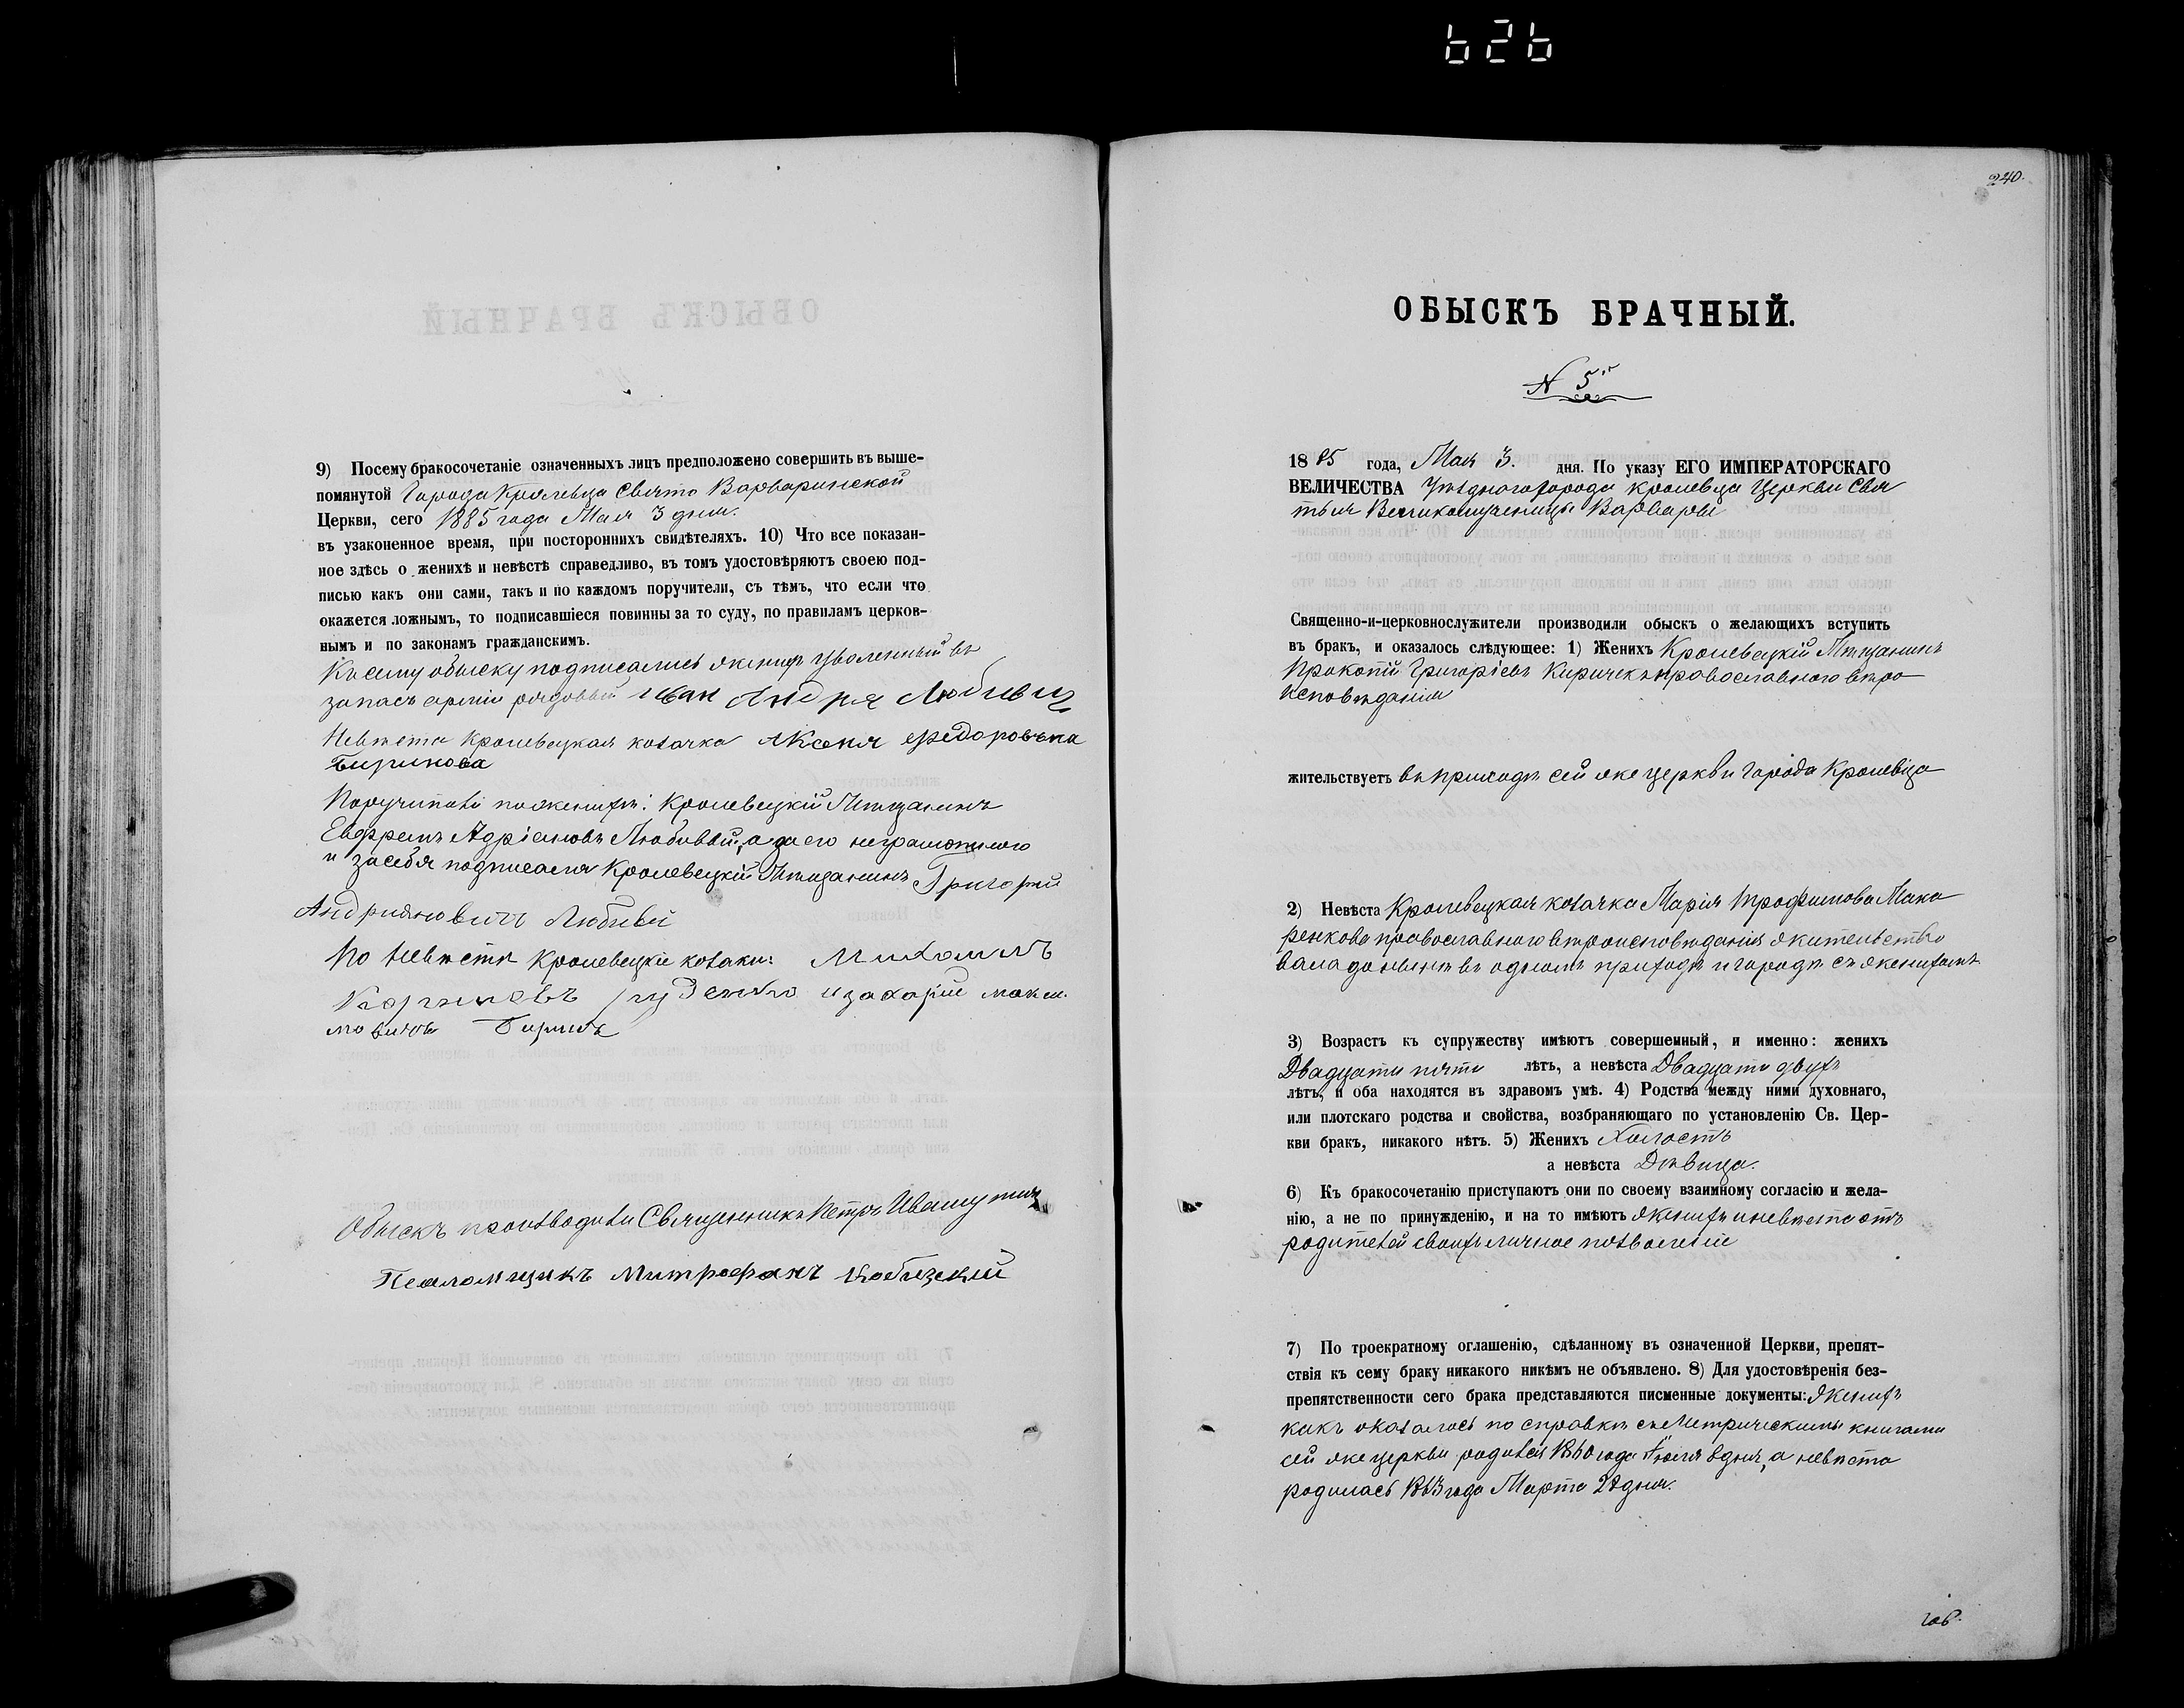 626
9) Посему бракосочетаніе означенныхъ лицъ предположено совершить въ выше-
помянутой Города Кролевца Свято Варваринской
Церкви, сего 1885 года Мая 3 дня.
въ узаконенное время, при постороннихъ свидѣтеляхъ. 10) Что все показан-
ное здѣсь о женихѣ и невѣстѣ справедливо, въ томъ удостовѣряютъ своею под-
писью какъ они сами, такъ и по каждомъ поручители, съ тѣмъ, что если что
окажется ложнымъ, то подписавшіеся повинны за то суду, по правиламъ церков-
нымъ и по законамъ гражданскимъ.
Къ сему обыску подписались женихъ уволенный въ
запасъ арміи рядовый Иван Андрея
Невѣста Кролевецкая козачка Аксенія Федоровна
Бирикова
Поручители по женихѣ: Кролевецкій Мѣщанинъ
Евфремъ Адріановъ Любивый, а за его неграмотного
и за себя подписался Кролевецкій Мѣщанинъ Григорий
Андрияновичъ Любивы
По Невѣстѣ Кролевецкіе козаки: Михаилъ
Руденко и Захарій макси-
мовичъ Бирикъ
Обыскъ производили Священникъ Петръ
Псаломщикъ Митрофанъ
240.
ОБЫСКЪ БРАЧНЫЙ.
N 5й
1885 года, Мая 3. дня. По указу ЕГО ИМПЕРАТОРСКАГО
ВЕЛИЧЕСТВА Уѣздного города Кролевца Церкви Свя
тыя Великомученицы Варвары
Священно-и-церковнослужители производили обыскъ о желающихъ вступить
въ бракъ, и оказалось слѣдующее: 1) Женихъ Кролевецкій Мѣщанинъ
Прокопій Григоріевъ Киричекъ православного вѣро
исповѣданія
жительствуетъ въ приходѣ сей же церкви города Кролевца
2) Невѣста Кролевецкая козачка Марія Трофимова Мака
ренкова православного вѣроисповѣданія жительство
вала до нынѣ въ одномъ приходѣ и городѣ съ женихомъ.
3) Возрастъ къ супружеству имѣютъ совершенный, и именно: женихъ
Двадцати пяти лѣтъ, а невѣста Двадцати двухъ
лѣтъ, и оба находятся въ здравомъ умѣ. 4) Родства между ними духовнаго,
или плотскаго родства и свойства, возбраняющаго по установленію Св. Цер-
кви бракъ, никакого нѣтъ. 5) Женихъ Холостъ
а невѣста Дѣвица.
6) Къ бракосочетанію приступаютъ они по своему взаимному согласію и жела-
нію, а не по принужденію, и на то имѣютъ женихъ и невѣста отъ
родителей своихъ личное позволеніе
7) По троекратному оглашенію, сдѣланному въ означенной Церкви, препят-
ствія къ сему браку никакого никѣмъ не объявлено. 8) Для удостовѣренія без-
препятственности сего брака представляются писменные документы: Женихъ
какъ оказалось по справкѣ съ Метрическими книгами
сей же церкви родился 1860 года Іюля 8 дня, а невѣста
родилась 1863 года Марта 28 дня.